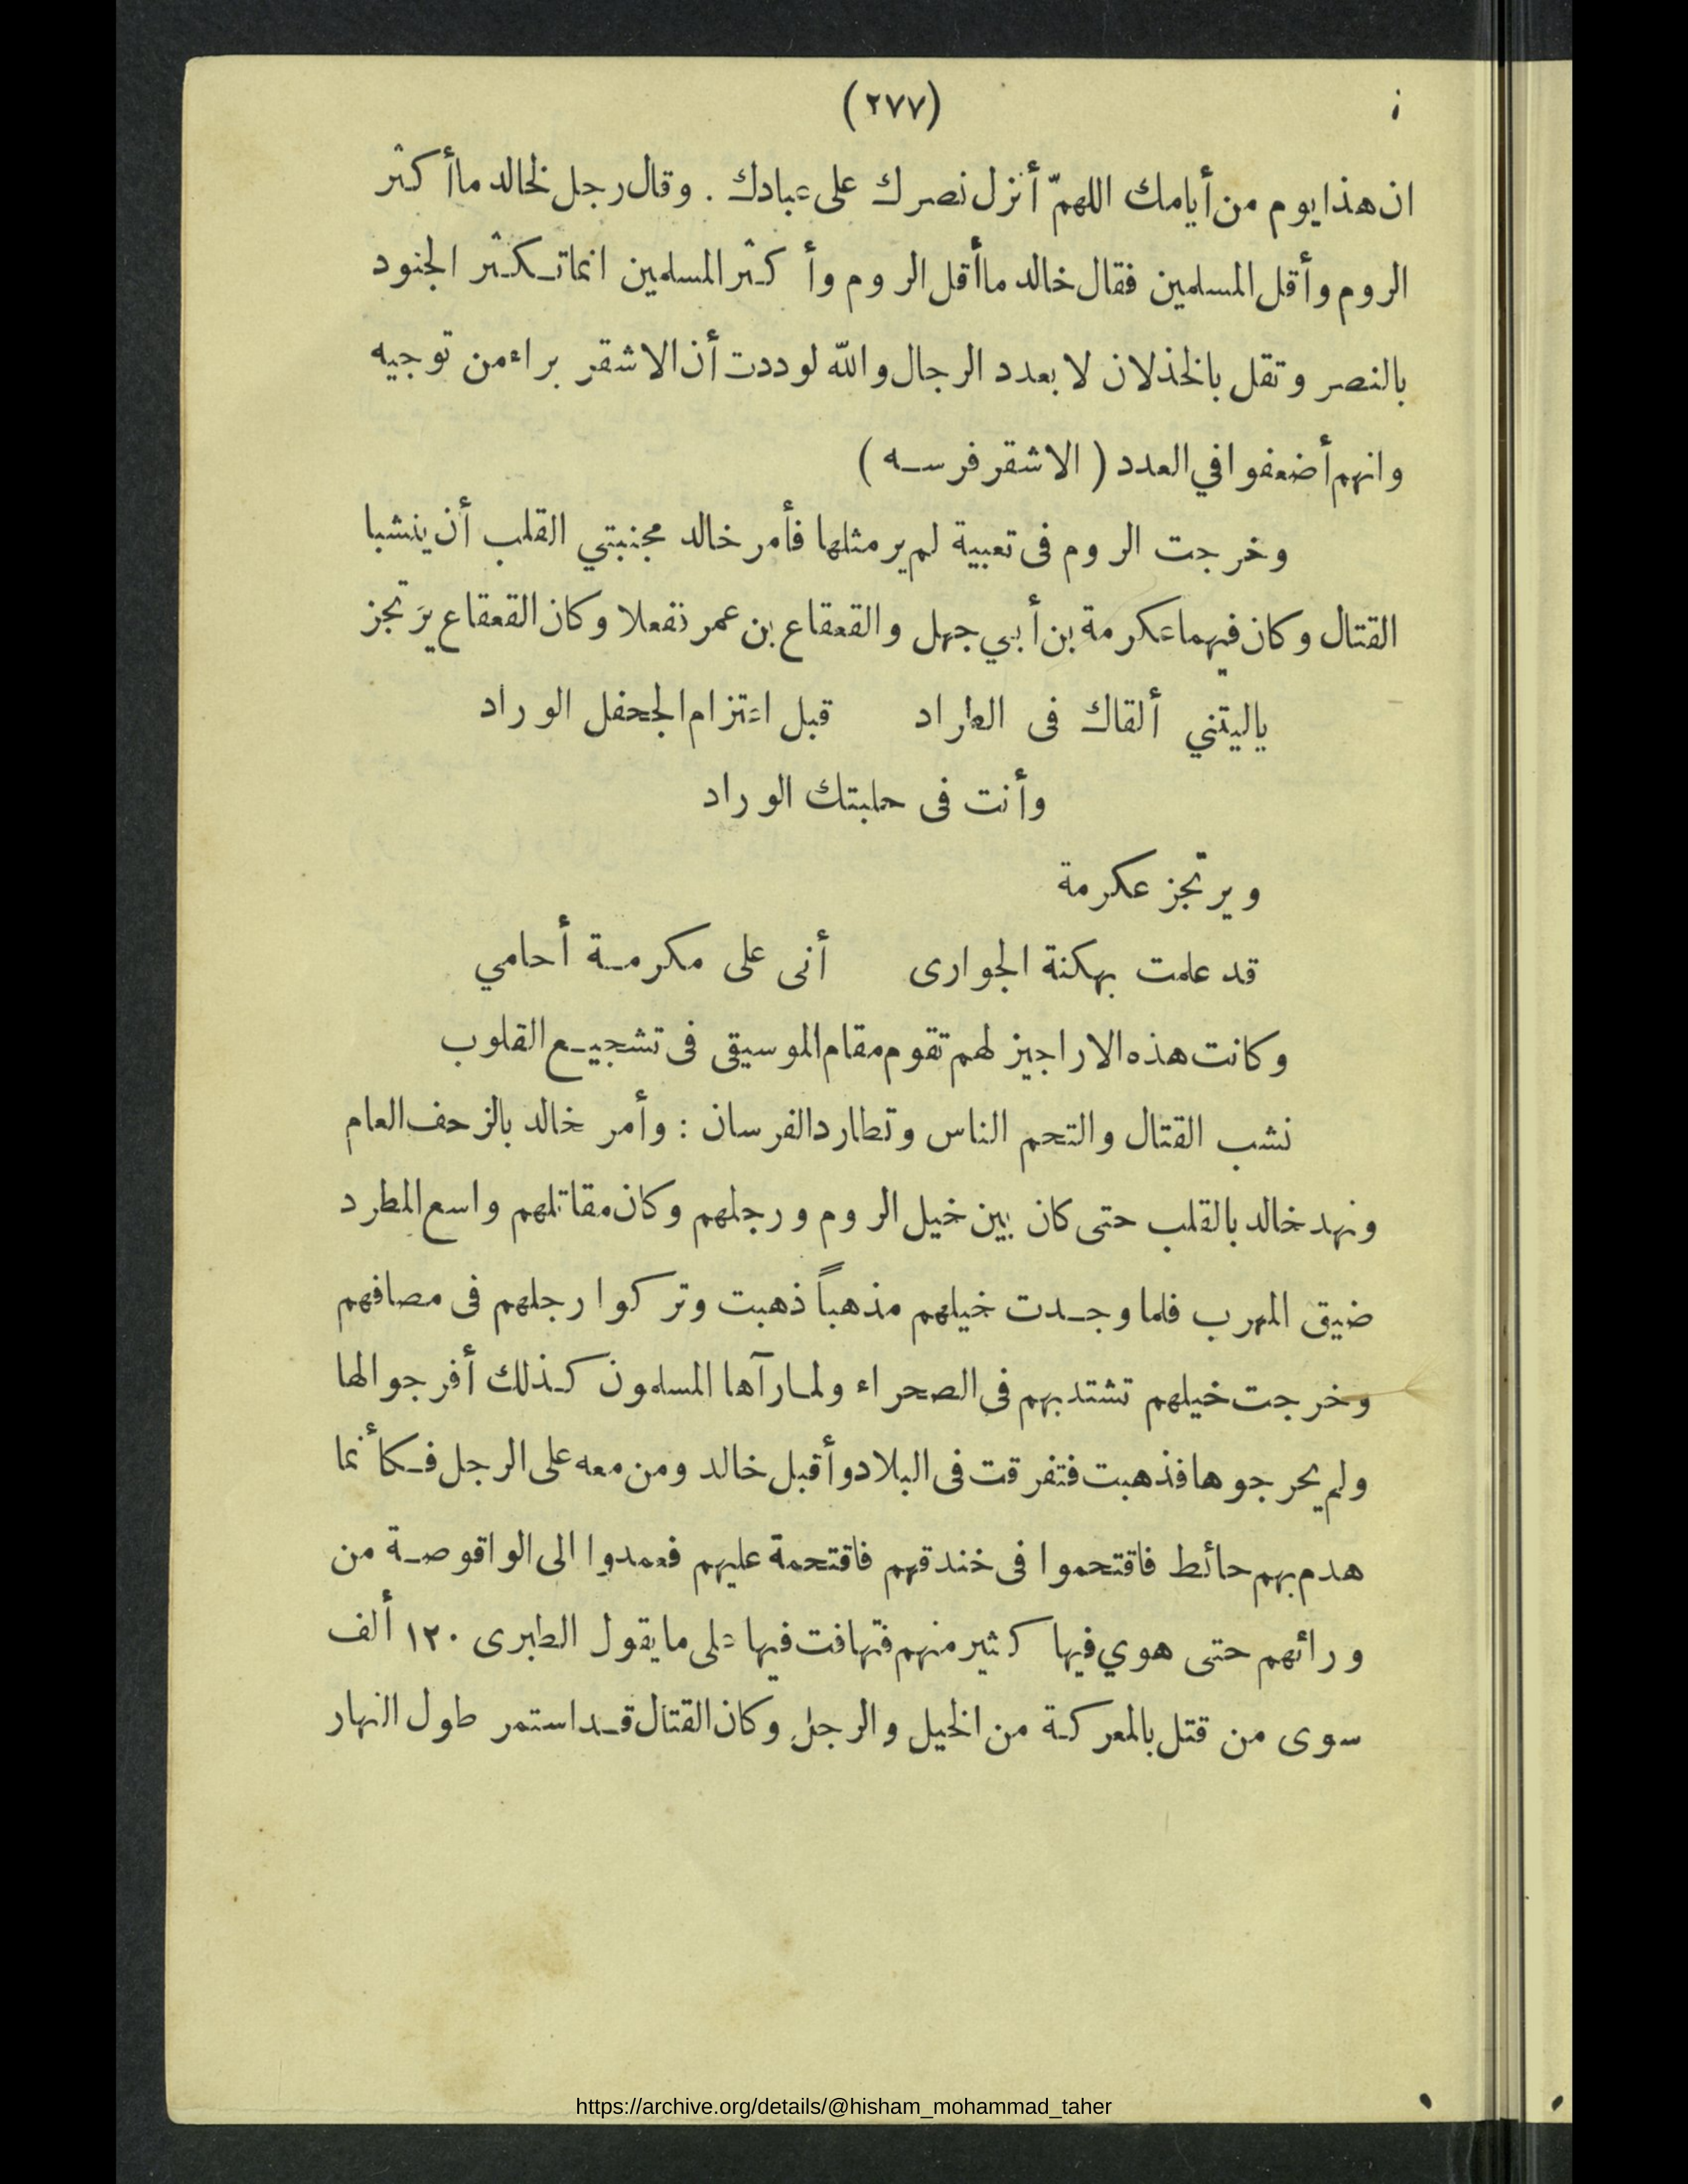 (٢٧٧)
ان هذا يوم من أيامك اللهمّ أنزل نصرك على عبادك . وقال رجل لخالد ما أكثر
الروم وأقل المسلمين فقال خالد ما أقل الروم وأكثر المسلمين انما تكثر الجنود
بالنصر وتقل بالخذلان لا بعدد الرجال والله لوددت أن الاشقر براء من توجيه
وانهم أضعفوا في العدد ( الاشقر فرسه )
وخرجت الروم فى تعبية لم ير مثلها فأمر خالد مجنبتي القلب أن ينشبا
القتال وكان فيهما عكرمة بن أبي جهل والقعقاع بن عمر نفعلا وكان القعقاع يرَتجز
ياليتني ألقاك فى الطراد قبل اعتزام الجحفل الوراد
وأنت فى حلبتك الوراد
ويرتجز عكرمة
قد علمت بهكنة الجوارى أنى على مكرمة أحامي
وكانت هذه الاراجيز لهم تقوم مقام الموسيقى فى تشجيع القلوب
نشب القتال والتحم الناس وتطارد الفرسان : وأمر خالد بالزحف العام
ونهد خالد بالقلب حتى كان بين خيل الروم ورجلهم وكان مقاتلهم واسع المطرد
ضيق المهرب فلما وجدت خيلهم مذهباً ذهبت وتركوا رجلهم فى مصافهم
وخرجت خيلهم تشتد بهم فى الصحراء ولما رآها المسلمون كذلك أفرجوا لها
ولم يحرجوها فذهبت فتفرقت فى البلاد وأقبل خالد ومن معه على الرجل فكأنما
هدم بهم حائط فاقتحموا فى خندقهم فاقتحمة عليهم فعمدوا الى الواقوصة من
ورائهم حتى هوي فيها كثير منهم فتهافت فيها على ما يقول الطبرى ١٢٠ ألف
سوى من قتل بالمعركة من الخيل والرجل وكان القتال قد استمر طول النهار
https://archive.org/details/@hisham_mohammad_taher